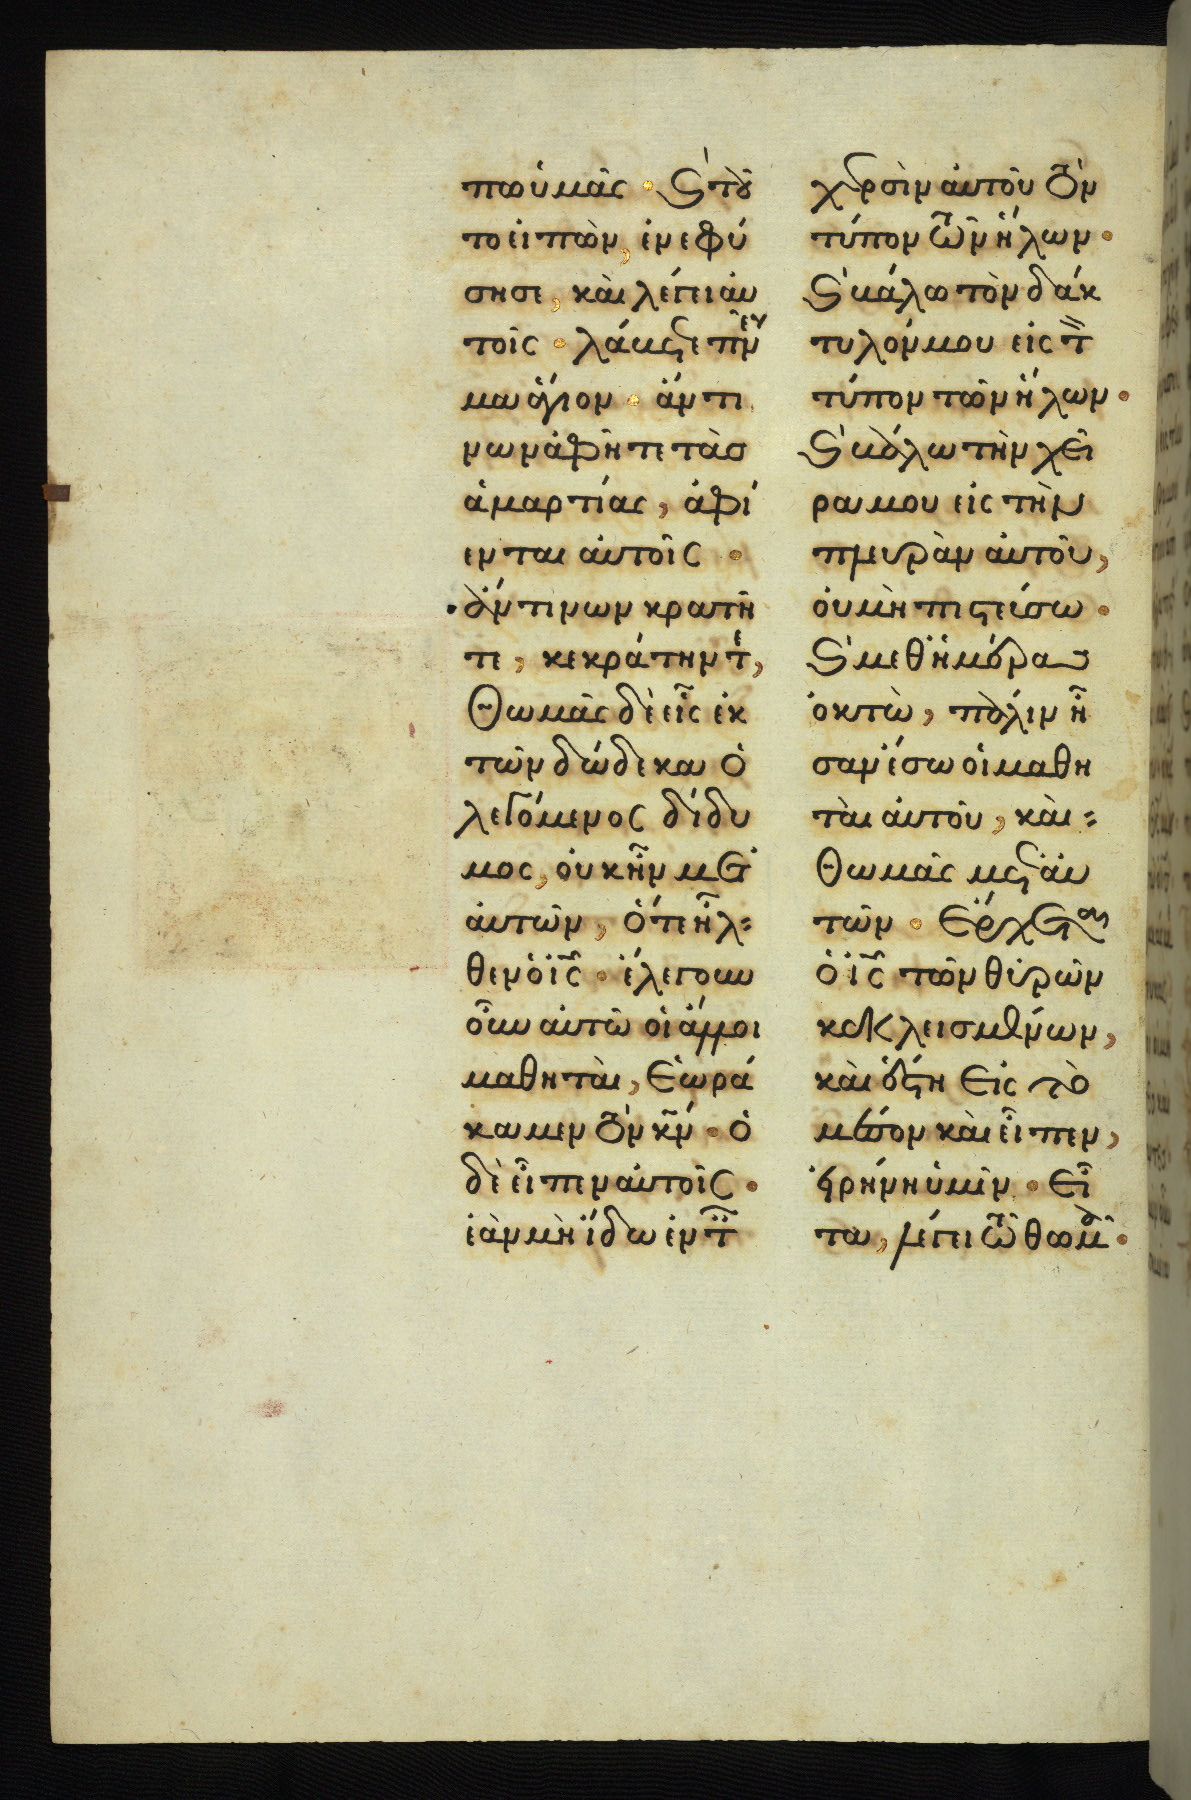 πω ὑμᾶς · Ϛ̀ τοῦ
το εἰπὼν, ἐνεφύ
σησε, καὶ λέγει αὐ
τοῖς · λάβετε πνεῦ
μα ἅγιον · ἄν τι
νων ἀφῆτε τὰσ
ἁμαρτίας, ἀφί
ενται αὐτοῖς ·
ἄν τινων κρατῆ
τε, κεκράτηντ,
Θωμᾶς δὲ εἷς ἐκ
τῶν δώδεκα ὁ
λεγόμενος δίδυ
μος, οὐκ ἦν μετ
αὐτῶν, ὅτε ἦλ
θεν ὁ ἰς̄ · ἔλεγον
οὖν αὐτῶ οἱ ἄλλοι
μαθηταὶ, ἑωρά
καμεν τὸν κ̄ν · ὁ
δὲ εἶπεν αὐτοῖς ·
ἐὰν μὴ ἴδω ἐν τ
χερσὶν αὐτοῦ τὸν
τύπον τῶν ἥλων ·
Ϛ̀ βάλω τὸν δάκ
τυλόν μου εἰς τ
τύπον τῶν ἥλων ·
Ϛ̀ βάλω τὴν χεῖ
ρα μου εἰς τὴν
πλευρὰν αὐτοῦ,
οὐ μὴ πιστεύσω ·
Ϛ̀ μεθ ἡμέρας
ὀκτὼ, πάλιν ἦ
σαν ἔσω οἱ μαθη
ταὶ αὐτοῦ, καὶ
Θωμᾶς μετ αὐ
τῶν · ἔρχεται
ὁ ἰς̄ τῶν θυρῶν
κεκλεισμένων,
καὶ ἔστη εἰς τὸ
μέσον καὶ εἶπεν,
εἰρήνη ὑμῖν · εἶ
τα, λέγει τῶ θωμᾶ ·